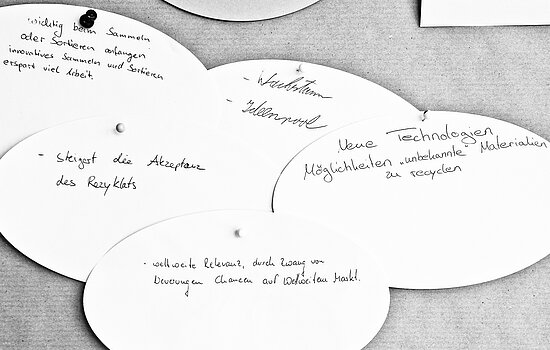 wichtig beim Sammeln
oder Sortieren anfangen
innovatives Sammeln und Sortieren
erspart viel Arbeit
- Wachstum
- Ideenpool
- steigert die Akzeptanz
des Rezyklats
Neue Technologien
Möglichkeiten "unbekannte" Materialien
zu recyclen
- weltweite Relevanz, durch Zwang von
Neuerungen Chancen auf Weltweitem Markt.